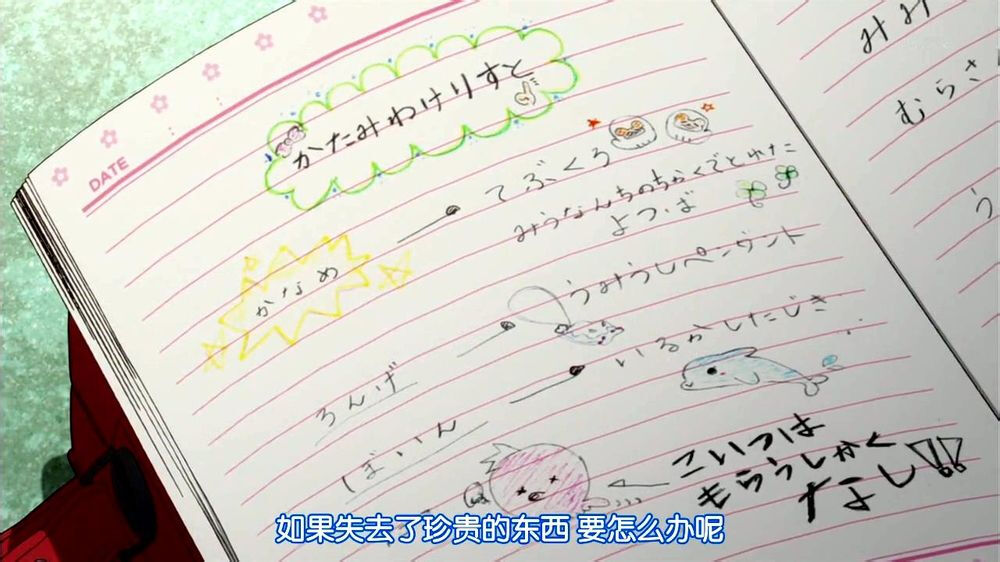 DATE
かたみわけりすと
かなめ
てぶくろ
みうなんちのちかくでとれた
よつば
ろんげ
うみうしペンダント
ぼいん
いるかしたじき
こいつは
もらうしかく
なし!!
みみ
むらさ
う
如果失去了珍贵的东西 要怎么办呢